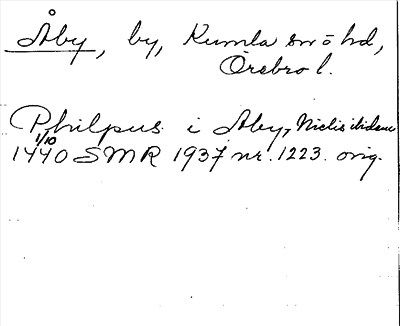 Åby, by, Kumla sn o hd,
Örebro l.
Philpus i Aby, Niclis ibidem
1/10
1440 SMR 1937 nr. 1223. orig.